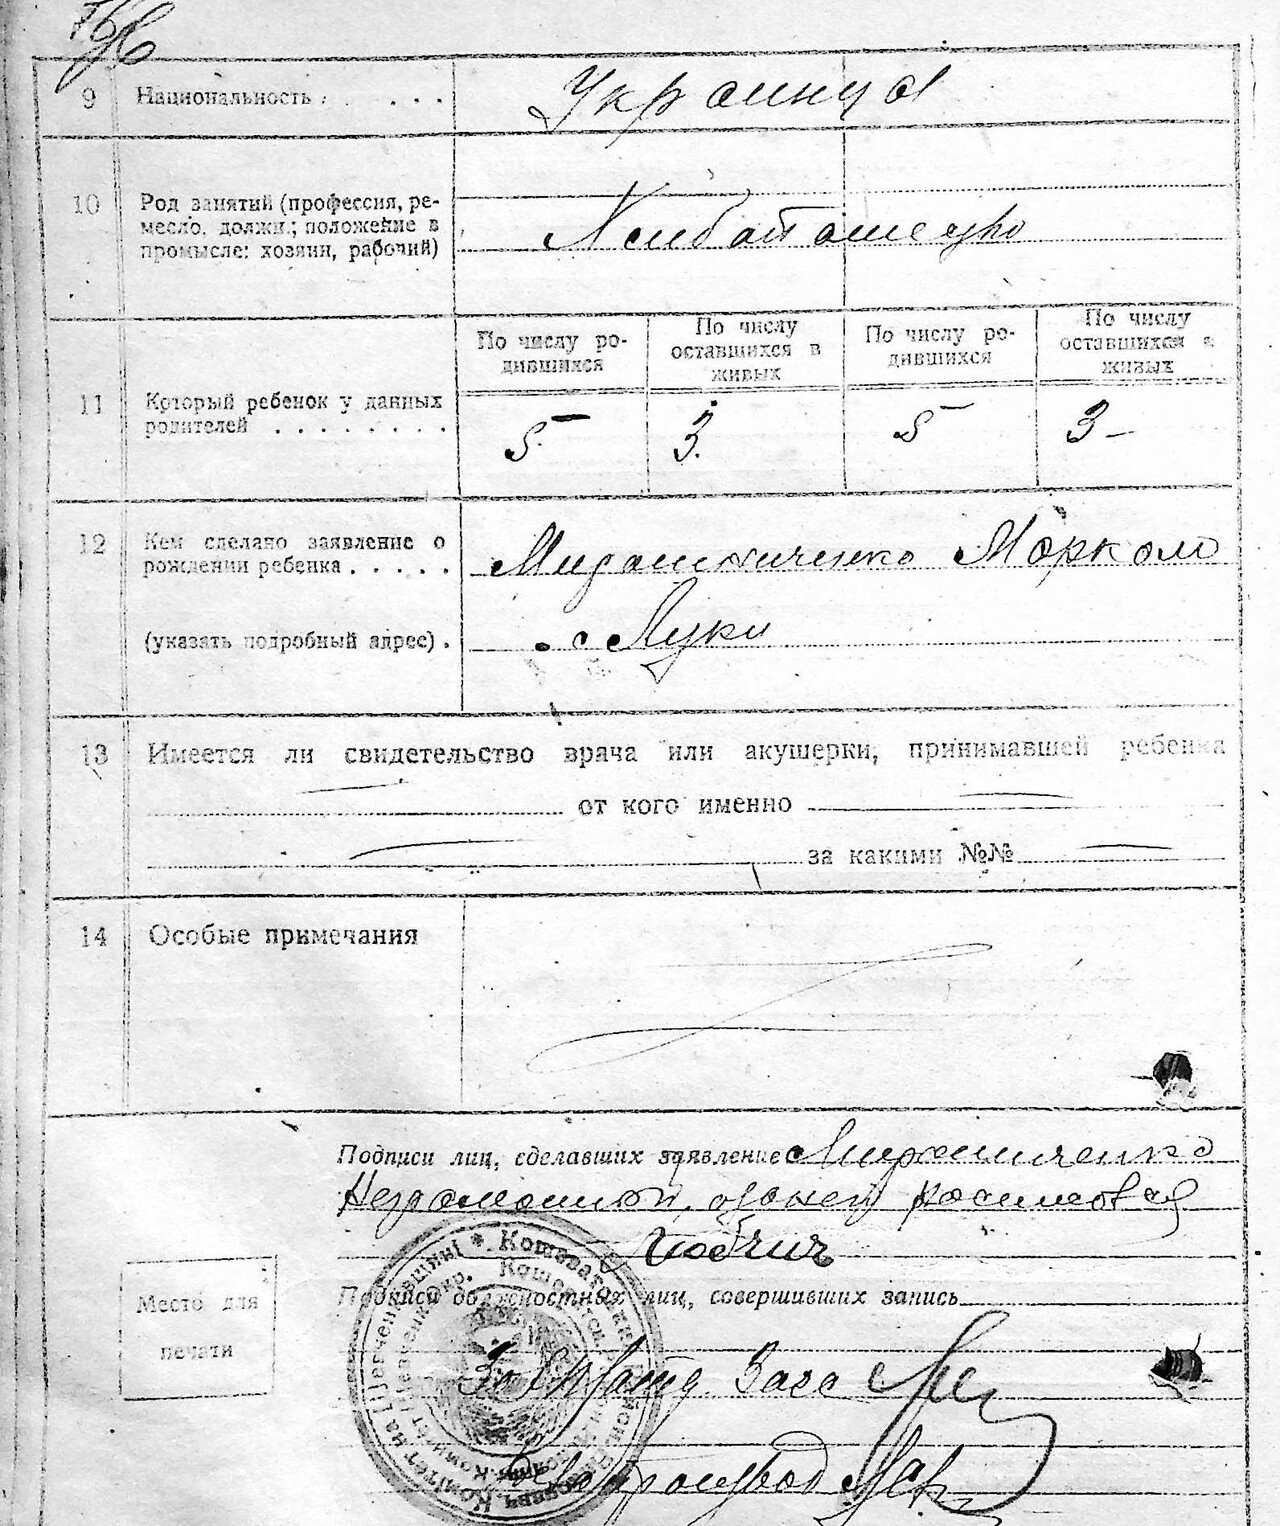 9 Национальность . . . . . Украинца
10 Род занятий (профессия, ре-
месло, должн.; положение в
промысле: хозяин, рабочий)
Хлибопашец
11 Который ребенок у данных
родителей . . . . . . . .
По числу ро-
дившихся
По числу
оставшихся в
живых
По числу ро-
дившихся
По числу
оставшихся в
живых
5 3. 5 3
12 Кем сделано заявление о
рождении ребенка . . . . .
Мирошниченко Марком
(указать подробный адрес) . с Луки
13 Имеется ли свидетельство врача или акушерки, принимавшей ребенка
от кого именно
за какими №№
14 Особые примечания
Подписи лиц, сделавших заявление Мирошниченко
Неграмотный,
Подписи должностных лиц, совершивших запись
Место для
печати
Зав